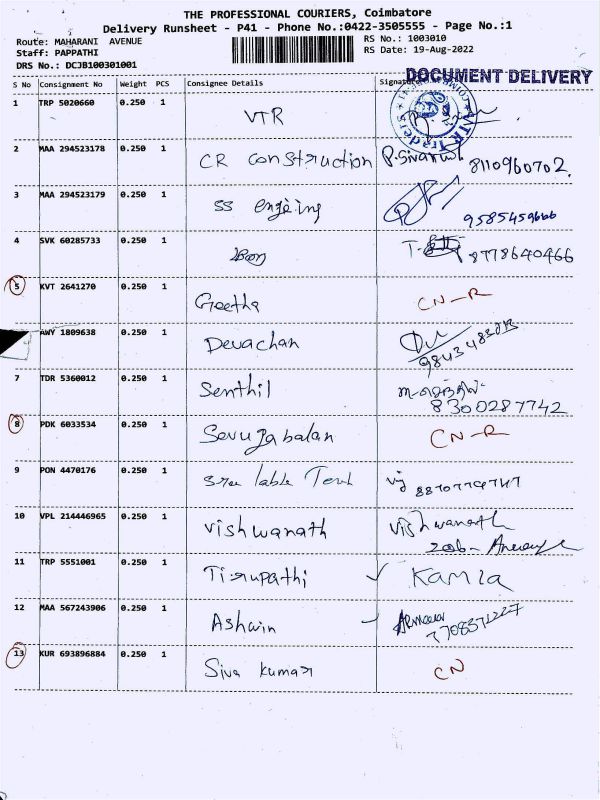 THE PROFESSIONAL COURIERS, Coimbatore
Delivery Runsheet - P41 - Phone No.:0422-3505555 - Page No.:1
Route: MAHARANI AVENUE
RS No.: 1003010
Staff: PAPPATHI
RS Date: 19-Aug-2022
DRS No.: DCJB100301001
DOCUMENT DELIVERY
S No Consignment No Weight PCS Consignee Details Signature
1 TRP 5020660 0.250 1 VTR
2 MAA 294523178 0.250 1 CR construction P.Sivakumar 8110960702.
3 MAA 294523179 0.250 1 SS engeing 9585459666
4 SVK 60285733 0.250 1 T. 8778640466
5 KVT 2641270 0.250 1 Geetha CN-R
AWY 1809638 0.250 1 Devachan
7 TDR 5360012 0.250 1 Senthil
8300287742
8 PDK 6033534 0.250 1 Sevugabalan CN-R
9 PON 4470176 0.250 1 Sree lable
10 VPL 214446965 0.250 1 Vishwanath Vishwanath
206-
11 TRP 5551001 0.250 1 Tirupathi Kamla
12 MAA 567243906 0.250 1 Ashwin
7708371227
13 KUR 693896884 0.250 1 Siva kumar CN